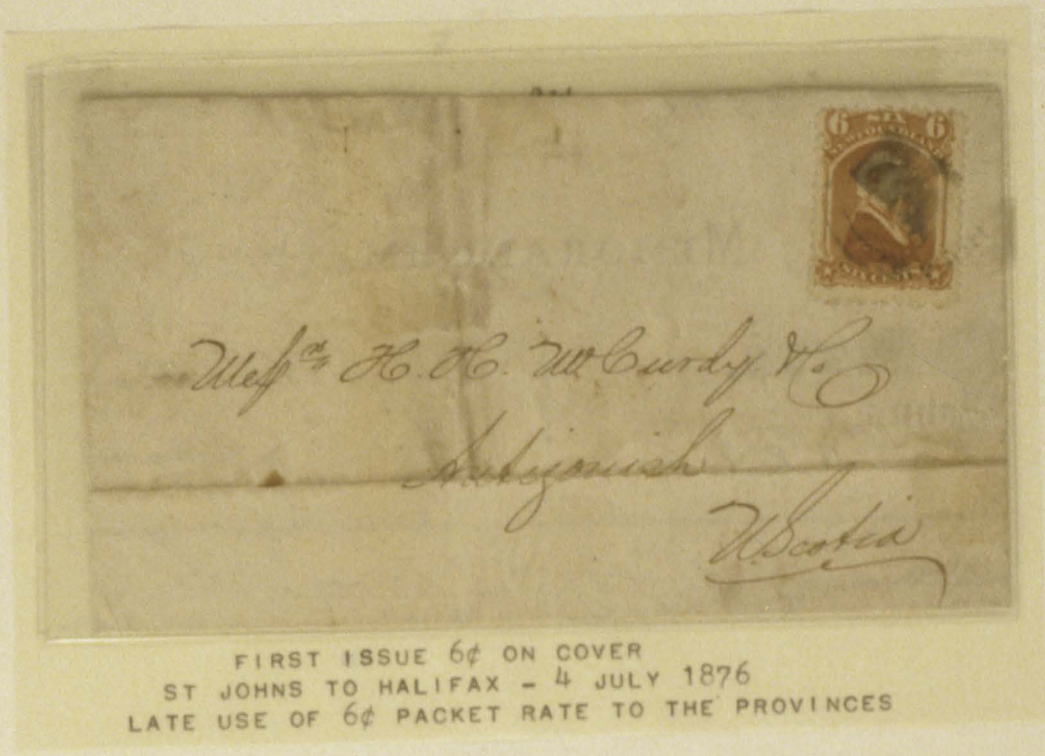 6 SIX 6
NEWFOUNDLAND
SIX CENTS
MEMORAN
Mess^rs H. H. McCurdy & Co
Antigonish
N. Scotia
FIRST ISSUE 6¢ ON COVER
ST JOHNS TO HALIFAX - 4 JULY 1876
LATE USE OF 6¢ PACKET RATE TO THE PROVINCES